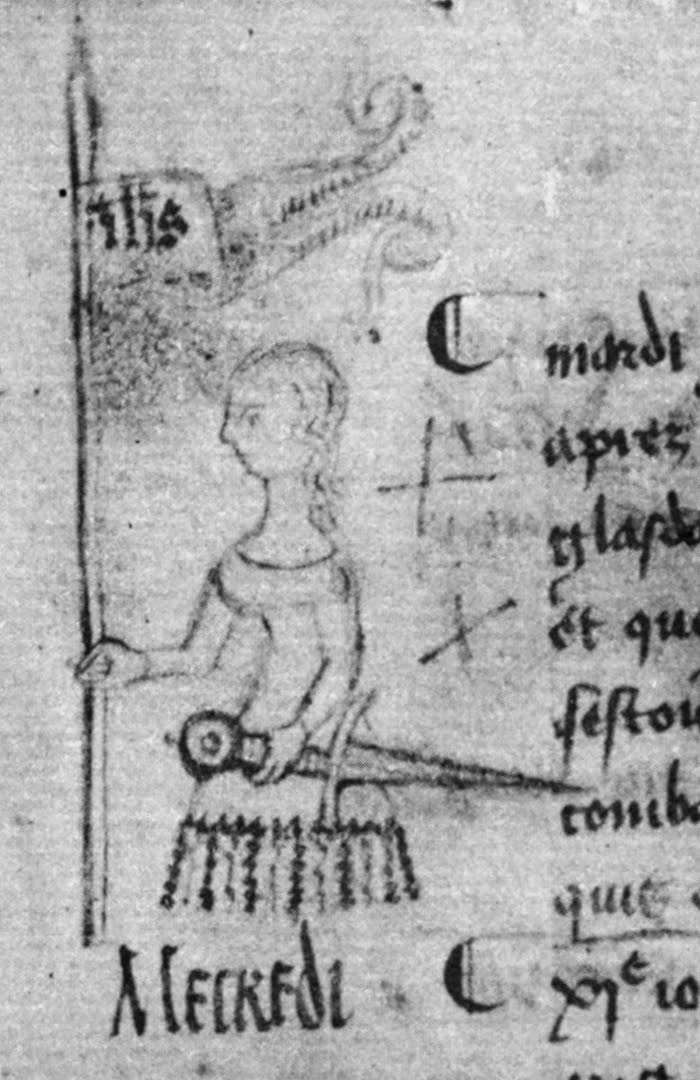 ihs
C mardi
apres
glasd
et que
sestoi
comba
que
Mecredi
C xje jo